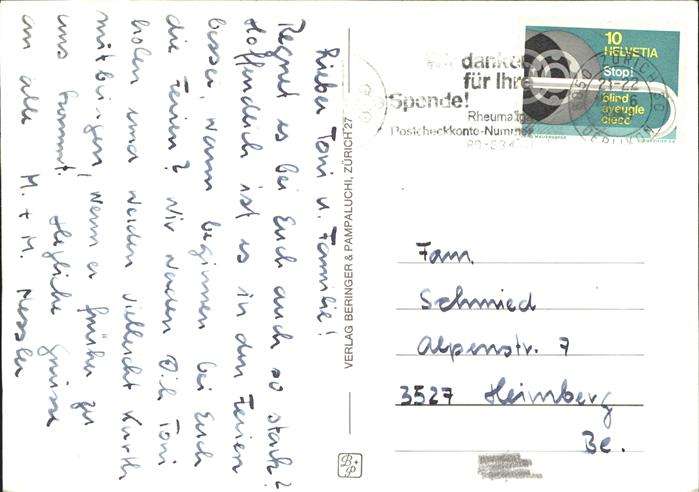 Lieber Toni u. Familie!
Regnet es bei Euch auch so stark?
Hoffendlich ist es in den Ferien
besser, wann beginnen bei Euch
die Ferien? Wir werden Dich Toni
holen und werden vielleicht Kurth
mitbringen, wenn er früher zu
uns kommt. Herzliche Grüsse
an alle M. + M. Messler
VERLAG BERINGER & PAMPALUCHI, ZÜRICH 27
B+P
Wir danken
für Ihre
Spende!
Rheumaliga
Postcheckkonto-Nummer
10
HELVETIA
Stop!
blind
aveugle
cieco
ZÜRICH
Fam.
Schmied
Alpenstr. 7
3527 Heimberg
Be.